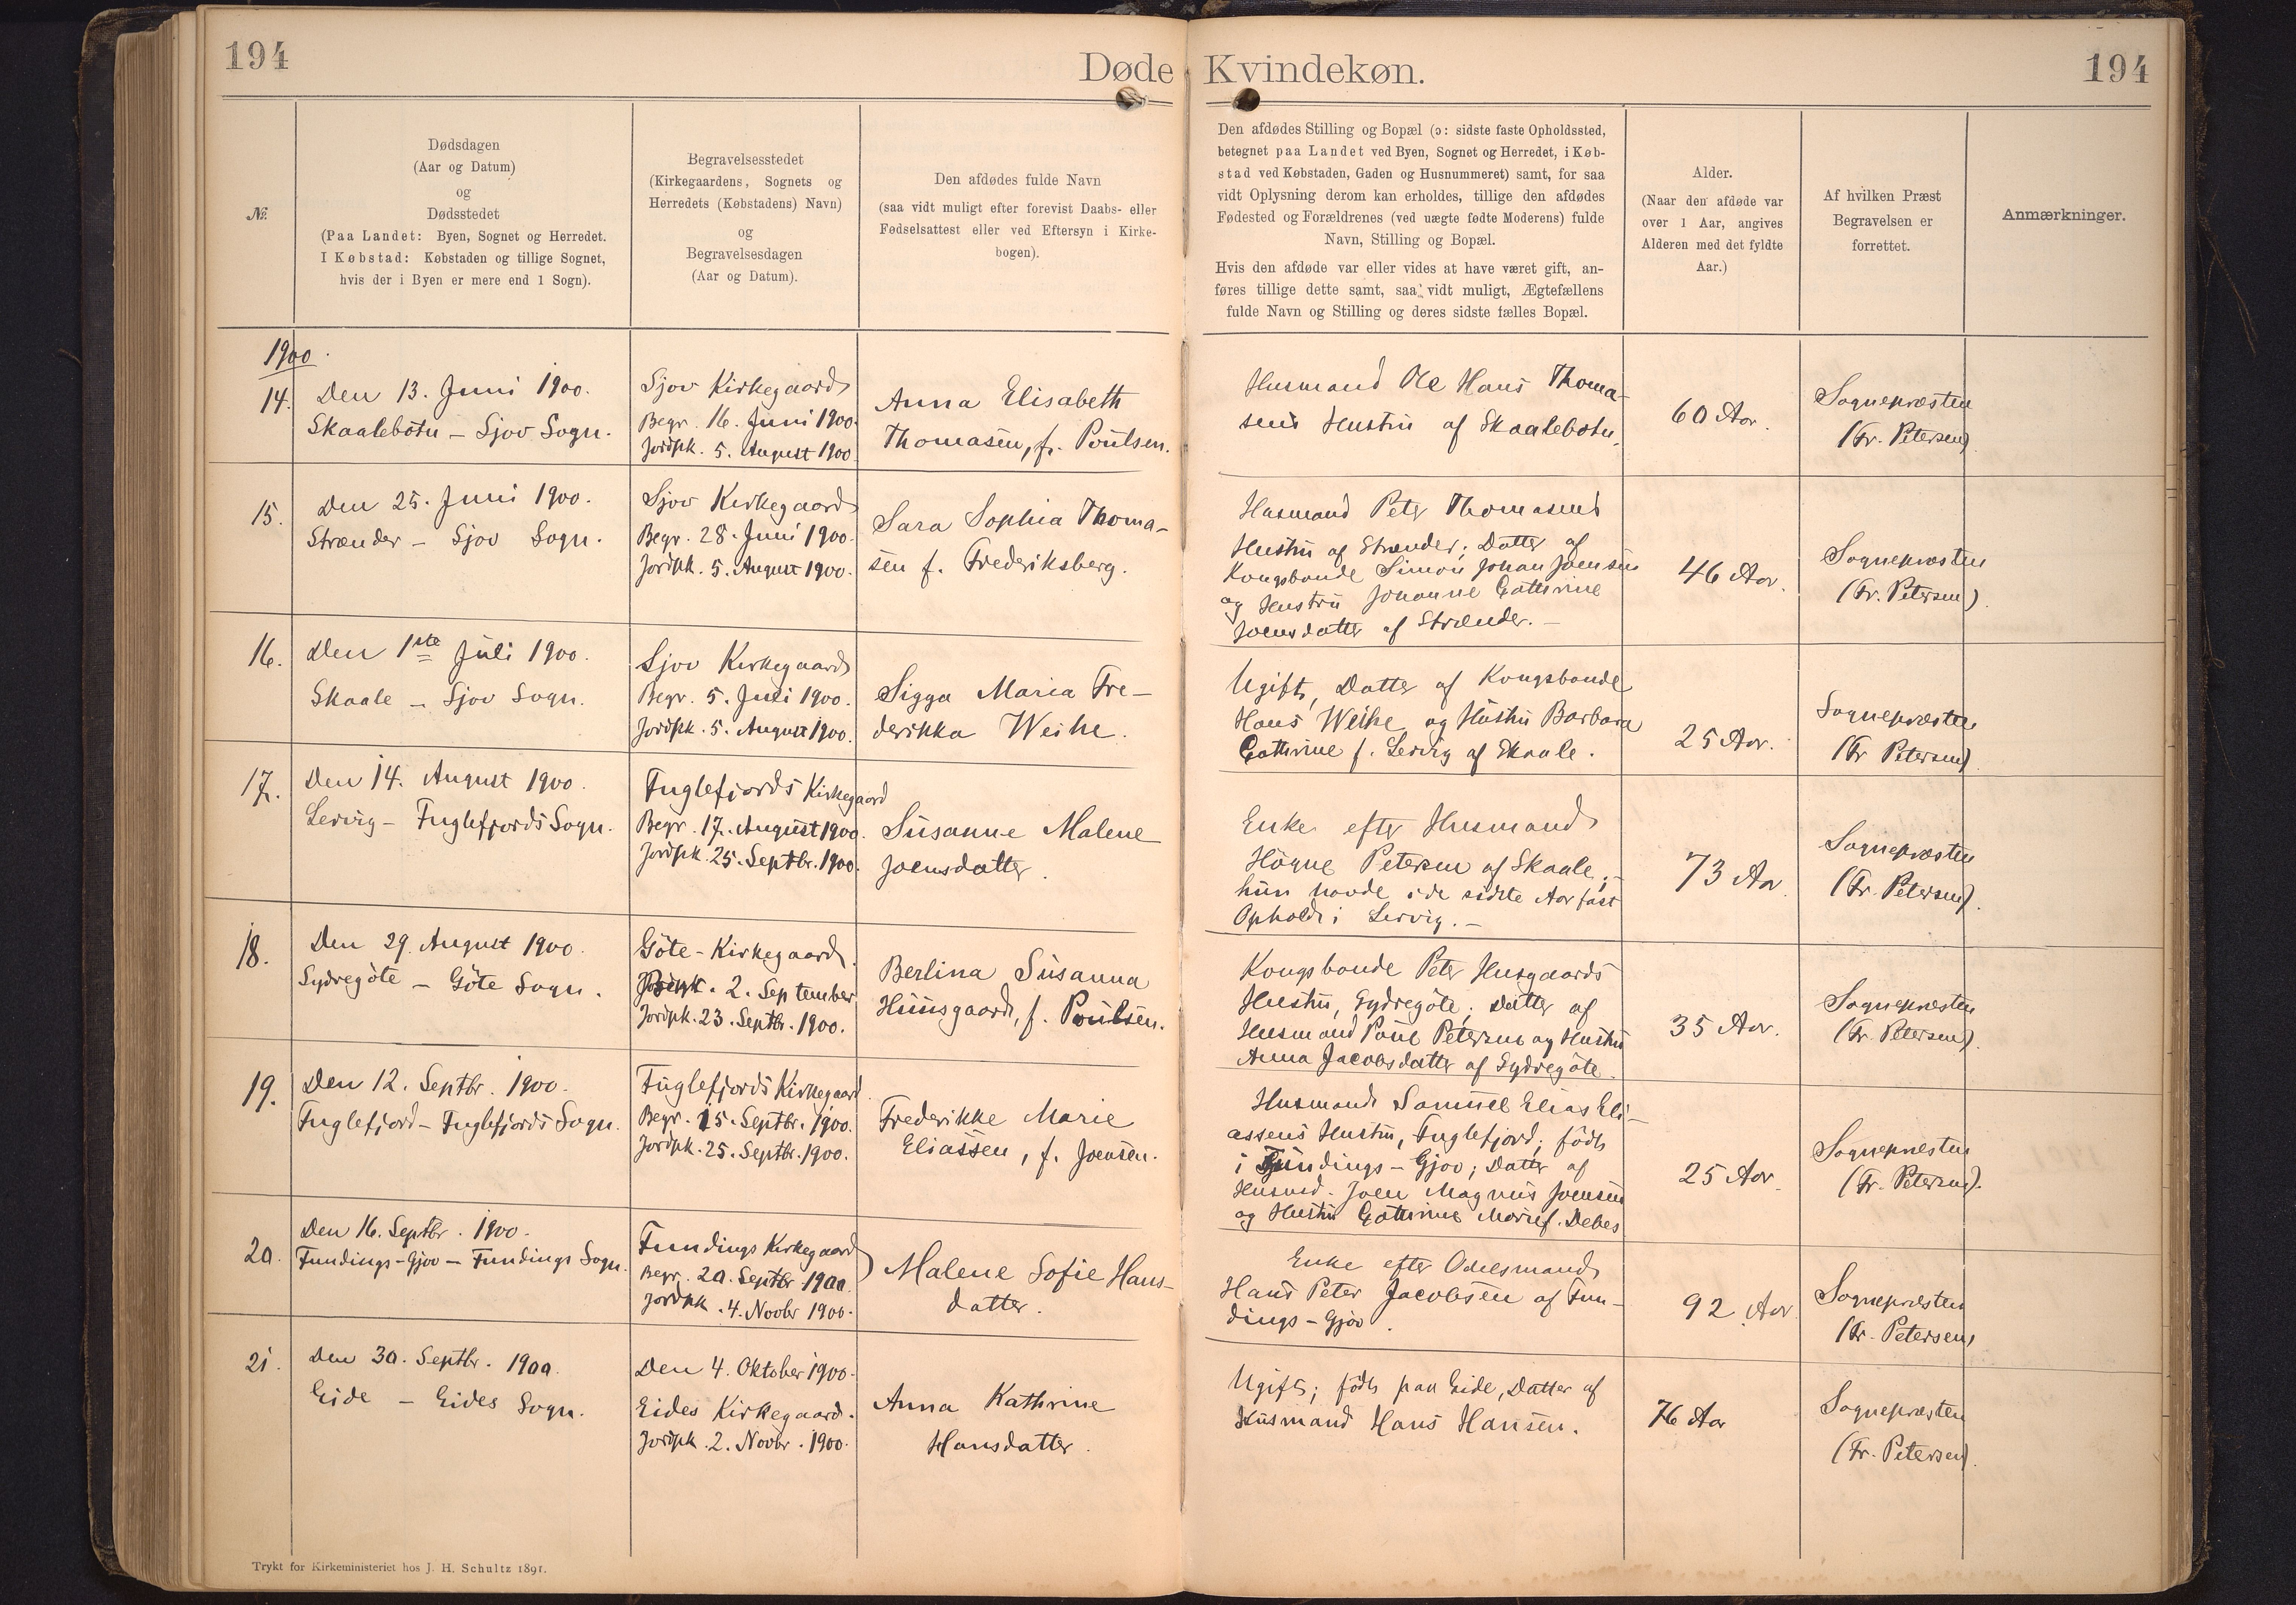 194
Døde Kvindekøn.
194
№.
Dødsdagen
(Aar og Datum)
og
Dødsstedet
(Paa Landet: Byen, Sognet og Herredet.
I Købstad: Købstaden og tillige Sognet,
hvis der i Byen er mere end 1 Sogn).
Begravelsesstedet
(Kirkegaardens, Sognets og
Herredets (Købstadens) Navn)
og
Begravelsesdagen
(Aar og Datum).
Den afdødes fulde Navn
(saa vidt muligt efter forevist Daabs- eller
Fødselsattest eller ved Eftersyn i Kirke-
bogen).
Den afdødes Stilling og Bopæl (ɔ: sidste faste Opholdssted,
betegnet paa Landet ved Byen, Sognet og Herredet, i Køb-
stad ved Købstaden, Gaden og Husnummeret) samt, for saa
vidt Oplysning derom kan erholdes, tillige den afdødes
Fødested og Forældrenes (ved uægte fødte Moderens) fulde
Navn, Stilling og Bopæl.
Hvis den afdøde var eller vides at have været gift, an-
føres tillige dette samt, saa vidt muligt, Ægtefællens
fulde Navn og Stilling og deres sidste fælles Bopæl.
Alder.
(Naar den afdøde var
over 1 Aar, angives
Alderen med det fyldte
Aar.)
Af hvilken Præst
Begravelsen er
forrettet.
Anmærkninger.
1900.
14.
Den 13. Juni 1900.
Skaalebotn - Sjov Sogn.
Sjov Kirkegaard
Begr. 16. Juni 1900.
Jordpk. 5. August 1900.
Anna Elisabeth
Thomasen, f. Poulsen.
Husmand Ole Hans Thoma-
sens Hustru af Skaalebotn.
60 Aar.
Sognepræsten
(Fr. Petersen)
15.
Den 25. Juni 1900.
Strænder - Sjov Sogn.
Sjov Kirkegaard
Begr. 28. Juni 1900.
Jordpk. 5. August 1900.
Sara Sophia Thoma-
sen f. Frederiksberg.
Husmand Peter Thomasens
Hustru af Strænder; Datter af
Kongsbonde Simon Johan Joensen
og Hustru Johanne Cathrine
Joensdatter af Strænder. -
46 Aar.
Sognepræsten
(Fr. Petersen).
16.
Den 1ste Juli 1900.
Skaale - Sjov Sogn.
Sjov Kirkegaard
Begr. 5. Juli 1900.
Jordpk. 5. August 1900.
Sigga Maria Fre-
derikka Weihe.
Ugift, Datter af Kongsbonde
Hans Weihe og Hustru Barbara
Cathrine f. Lervig af Skaale.
25 Aar.
Sognepræsten
(Fr Petersen)
17.
Den 14. August 1900.
Lervig - Fuglefjords Sogn.
Fuglefjords Kirkegaard
Begr. 17. August 1900.
Jordpk. 25. Septbr. 1900.
Susanne Malene
Joensdatter.
Enke efter Husmand
Högne Petersen af Skaale; -
hun havde i de sidste Aar fast
Ophold i Lervig. -
73 Aar
Sognepræsten
(Fr. Petersen).
18.
Den 29. August 1900.
Sydregöte - Göte Sogn.
Göte-Kirkegaard.
2. September
Jordpk. 23. Septbr. 1900.
Berlina Susanna
Huusgaard, f. Poulsen.
Kongsbonde Peter Husgaards
Hustru, Sydregöte; Datter af
Husmand Poul Petersen og Hustru
Anna Jacobsdatter af Sydregöte.
35 Aar.
Sognepræsten
(Fr. Petersen).
19.
Den 12. Septbr. 1900.
Fuglefjord - Fuglefjords Sogn.
Fuglefjords Kirkegaard.
Begr. 15. Septbr. 1900.
Jordpk. 25. Septbr. 1900.
Frederikke Marie
Eliassen, f. Joensen.
Husmand Samuel Elias Eli-
assens Hustru, Fuglefjord; født
i Fundings-Gjov; Datter af
Husmd. Joen Magnus Joensen
og Hustru Cathrine Marie f. Debes
25 Aar.
Sognepræsten
(Fr. Petersen).
20.
Den 16. Septbr. 1900.
Fundings-Gjov - Fundings Sogn.
Fundings Kirkegaard
Begr. 20. Septbr. 1900.
Jordpk. 4. Novbr 1900.
Malene Sofie Hans-
datter.
Enke efter Odelsmand
Hans Peter Jacobsen af Fun-
dings-Gjov.
92 Aar
Sognepræsten
(Fr. Petersen)
21.
Den 30. Septbr. 1900.
Eide - Eides Sogn.
Den 4. Oktober 1900.
Eides Kirkegaard.
Jordpk. 2. Novbr. 1900.
Anna Kathrine
Hansdatter.
Ugift; født paa Eide, Datter af
Husmand Hans Hansen.
76 Aar
Sognepræsten
(Fr. Petersen).
Trykt for Kirkeministeriet hos J. H. Schultz 1891.